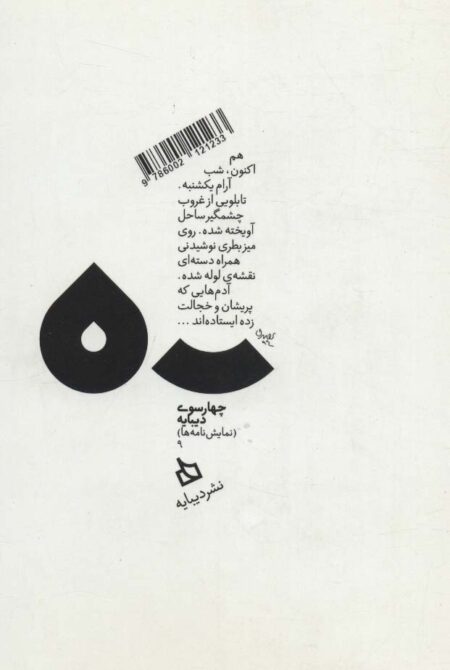 9 786002 121233
هم
اکنون، شب
آرام یکشنبه.
تابلویی از غروب
چشمگیر ساحل
آویخته شده. روی
میز بطری نوشیدنی
همراه دسته‌ای
نقشه‌ی لوله شده.
آدم‌هایی که
پریشان و خجالت
زده ایستاده‌اند ...
چهارسوی
دیبایه
(نمایش‌نامه‌ها)
۹
نشر دیبایه